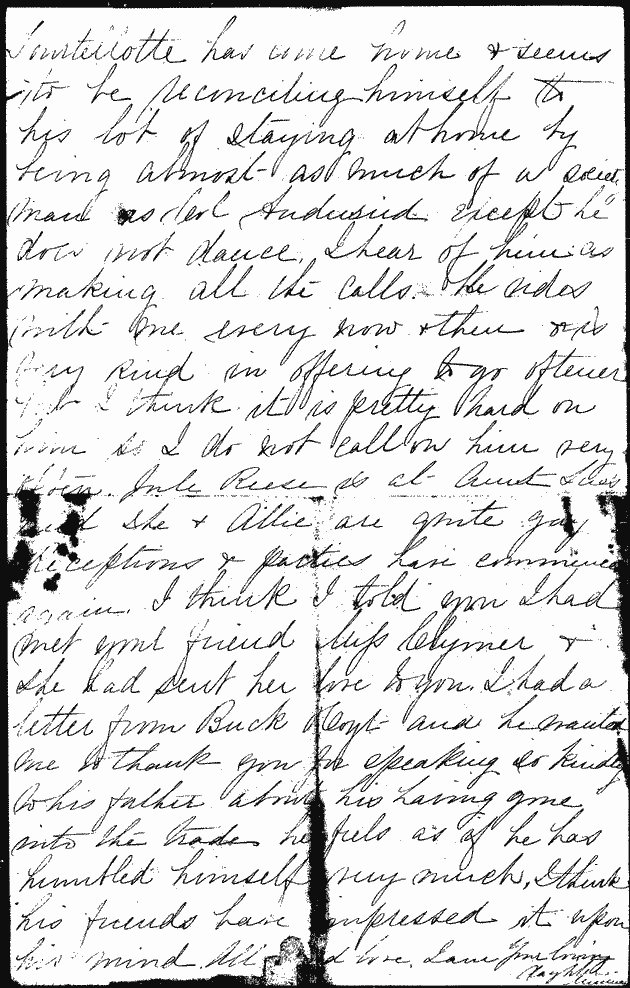 Tourtellotte has come home & seems
to be reconciling himself to
his lot of staying at home by
being almost as much of a
man as Col Andruss except he
does not dance. I hear of him as
making all the calls. He rides
with me every now & then & is
very kind in offering to go oftener
but I think it is pretty hard on
him so I do not call on him very
often. Jule Reese is at Aunt
and she & Allie are quite gay
Receptions & parties have commenced
again. I think I told you I had
met your friend Miss Clymer &
she had sent her love to you. I had a
letter from Buck Hoyt and he wanted
me to thank you for speaking so kindly
to his father about his having gone
into the trade he feels as if he has
humbled himself very much, I think
his friends have impressed it upon
his mind. All love. I am Your loving
daughter